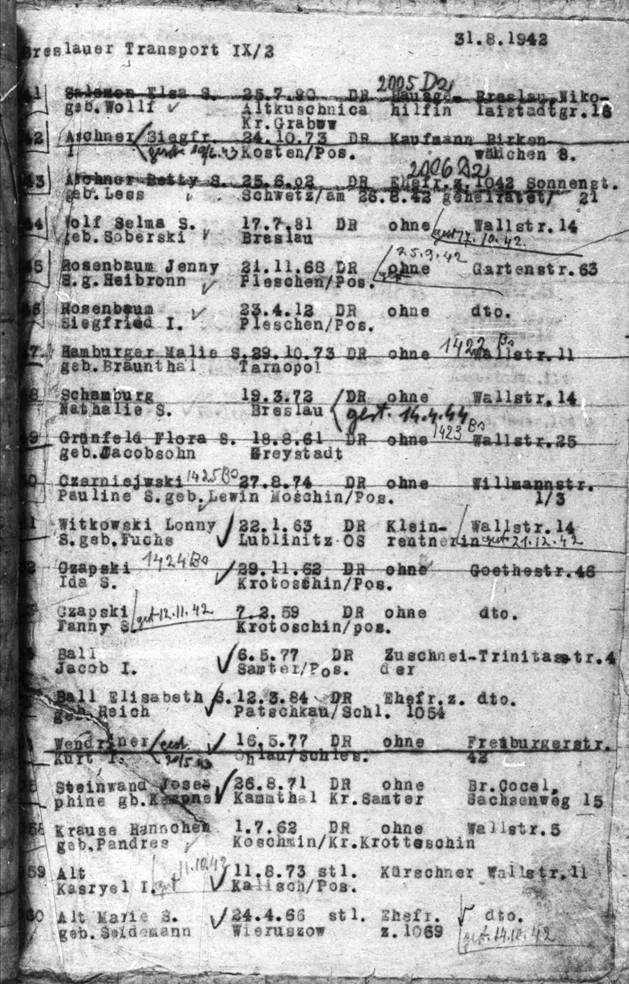 Breslauer Transport IX/2
31.8.1942
2005 D2
41 Salomon Elsa S. 25.7.90 DR Hausge- Breslau, Niko-
geb. Wollf Altkuschnica hilfin laistadtgr.18
Kr. Grabow
42 Aschner Siegfr. 24.10.73 DR Kaufmann Birken-
I Kosten/Pos. wäldchen 8.
2006 D2
43 Aschner Betty S. 25.6.02 DR Ehefr.z.1042 Sonnenst.
geb. Less Schwetz/am 26.8.42 geheiratet/ 21
44 Wolf Selma S. 17.7.81 DR ohne Wallstr.14
geb. Soberski Breslau gest. 17.10.42
25.9.42
45 Rosenbaum Jenny 21.11.68 DR ohne Gartenstr.63
S.g. Heibronn Pleschen/Pos.
46 Rosenbaum 23.4.12 DR ohne dto.
Siegfried I. Pleschen/Pos.
47 Hamburger Malie S. 29.10.73 DR ohne 1422 Bo Wallstr.11
geb. Braunthal Tarnopol
8 Schamburg 19.3.72 DR ohne Wallstr.14
Nathalie S. Breslau gest. 14.4.44
1423 Bo
49 Grünfeld Flora S. 18.8.61 DR ohne Wallstr.25
geb. Jacobsohn Freystadt
0 Czarniejwski 1425 Bo 27.8.74 DR ohne Willmannstr.
Pauline S. geb. Lewin Moschin/Pos. 1/3
1 Witkowski Lonny 22.1.63 DR Klein- Wallstr.14
S. geb. Fuchs Lublinitz OS rentnerin gest. 21.12.42
1424 Bo
2 Czapski 29.11.62 DR ohne Goethestr.46
Ida S. Krotoschin/Pos.
Czapski gest. 12.11.42 7.2.59 DR ohne dto.
Fanny S. Krotoschin/pos.
Ball 6.5.77 DR Zuschnei- Trinitasstr.4
Jacob I. Samter/Pos. der
Ball Elisabeth S. 12.3.84 DR Ehefr.z. dto.
geb. Reich Patschkau/Schl. 1054
Wendriner gest. 16.5.77 DR ohne Freiburgerstr.
Kurt I. Ohlau/Schles. 42
Steinwand Jose= 26.8.71 DR ohne Br. Cocel,
phine gb. Kempner Kammthal Kr. Samter Sachsenweg 15
58 Krause Hannchen 1.7.62 DR ohne Wallstr.5
geb. Pandres Koschmin/Kr. Krotteschin
11.10.42
59 Alt 11.8.73 stl. Kürschner Wallstr.11
Kasryel I. gest. Kalisch/Pos.
60 Alt Marie S. 24.4.66 stl. Ehefr. dto.
geb. Seidemann Wieruszow z.1069 gest. 14.10.42